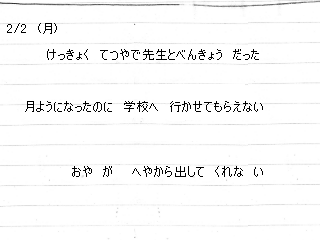 2/2 （月）
けっきょく てつやで先生とべんきょう だった
月ようになったのに 学校へ 行かせてもらえない
おや が へやから出して くれな い